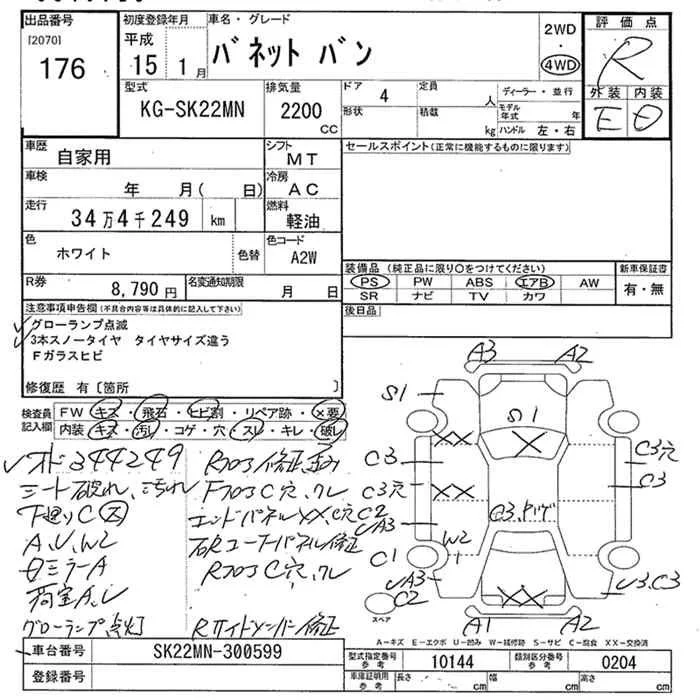 出品番号
[2070]
176
初度登録年月
平成
15 1月
車名・グレード
バネット バン
2WD
・
4WD
評価点
R
外装 内装
E D
型式
KG-SK22MN
排気量
2200
CC
ドア 4
形状
定員 人
積載 kg
ディーラー・並行
モデル年式 年式
ハンドル 左・右
車歴
自家用
シフト
MT
車検
年 月( 日)
冷房
AC
走行
34万4千249 km
燃料
軽油
色
ホワイト
色替
色コード
A2W
R券
8,790円
名変通知期限
月 日
セールスポイント(正常に機能するものに限ります)
装備品 (純正品に限り○をつけてください)
PS PW ABS エアB AW
SR ナビ TV カワ
新車保証書
有・無
後日品
注意事項申告欄(不具合内容等は具体的に記入して下さい)
グローランプ点滅
3本スノータイヤ タイヤサイズ違う
Fガラスヒビ
修復歴 有〔箇所 〕
検査員
記入欄
FW キズ・飛石・ヒビ割・リペア跡・×要
内装 キズ・汚れ・コゲ・穴・スレ・キレ・破れ
オド344249
シート破れ、汚れ
下廻りC
A、U、W2
ミラーA
荷室A、U
グローランプ点灯
エンドパネルXX、C穴C2
右Rコーナーパネル修正
Rサイドメンバー修正
A3 A2
S1
S1
XX
C3
C3穴
C3
C3穴
XX
UA3
W2
C1
UA3
C2
XX
U3、C3
スペア
A1 A2
A-キズ E-エクボ U-凹み W-補修跡 S-サビ C-腐食 XX-交換済
車台番号
SK22MN-300599
登録番号
型式指定番号
参考
10144
類別区分番号
参考
0204
車庫証明用
参考
長さ cm
幅 cm
高さ cm